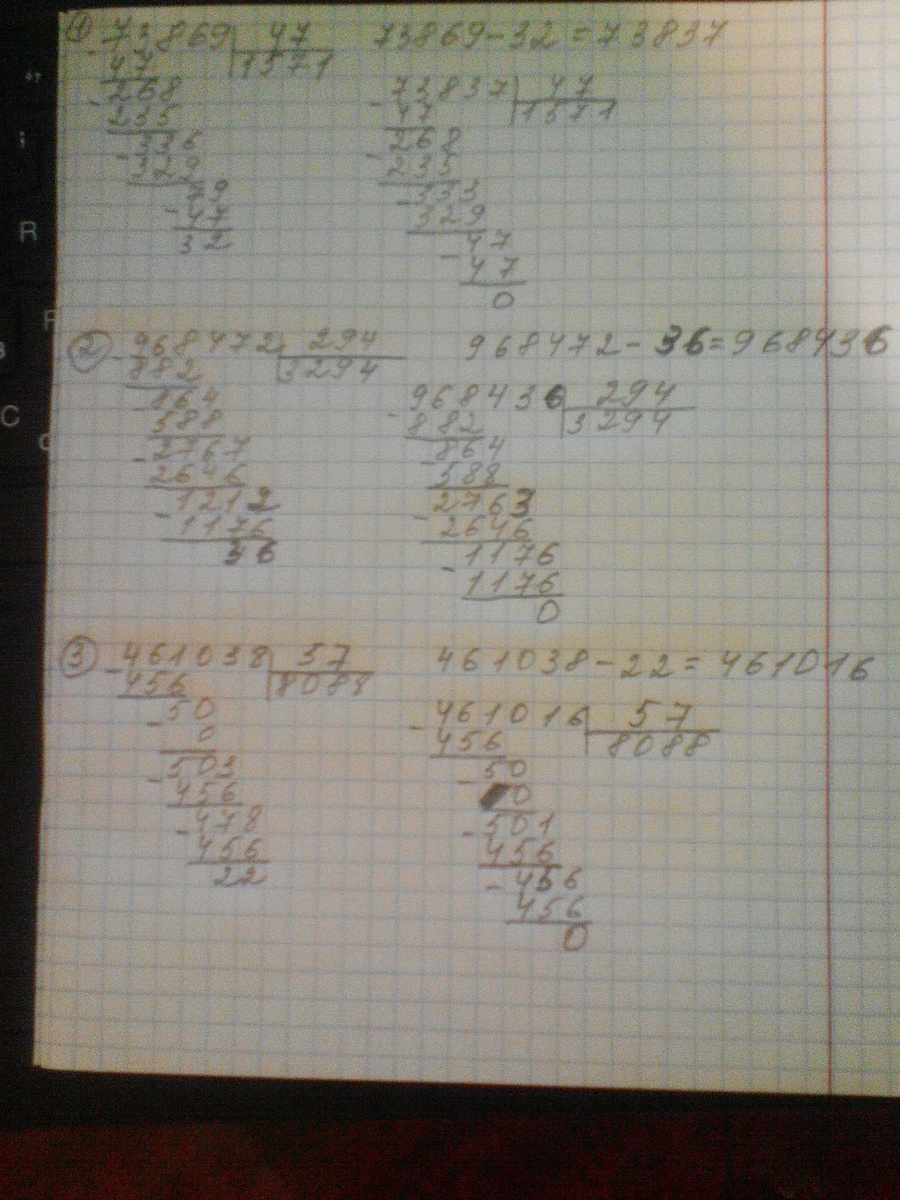 ① 73869 | 47
- 47 | 1571
- 268
235
- 336
329
- 79
47
32
73869-32=73837
- 73837 | 47
47 | 1571
- 268
235
- 333
329
- 47
47
0
② - 968472 | 294
882 | 3294
- 864
588
- 2767
2646
- 1212
1176
36
968472-36=968436
- 968436 | 294
882 | 3294
- 864
588
- 2763
2646
- 1176
1176
0
③ - 461038 | 57
456 | 8088
- 50
0
- 503
456
- 478
456
22
461038-22=461016
- 461016 | 57
456 | 8088
- 50
0
- 501
456
- 456
456
0
R
C